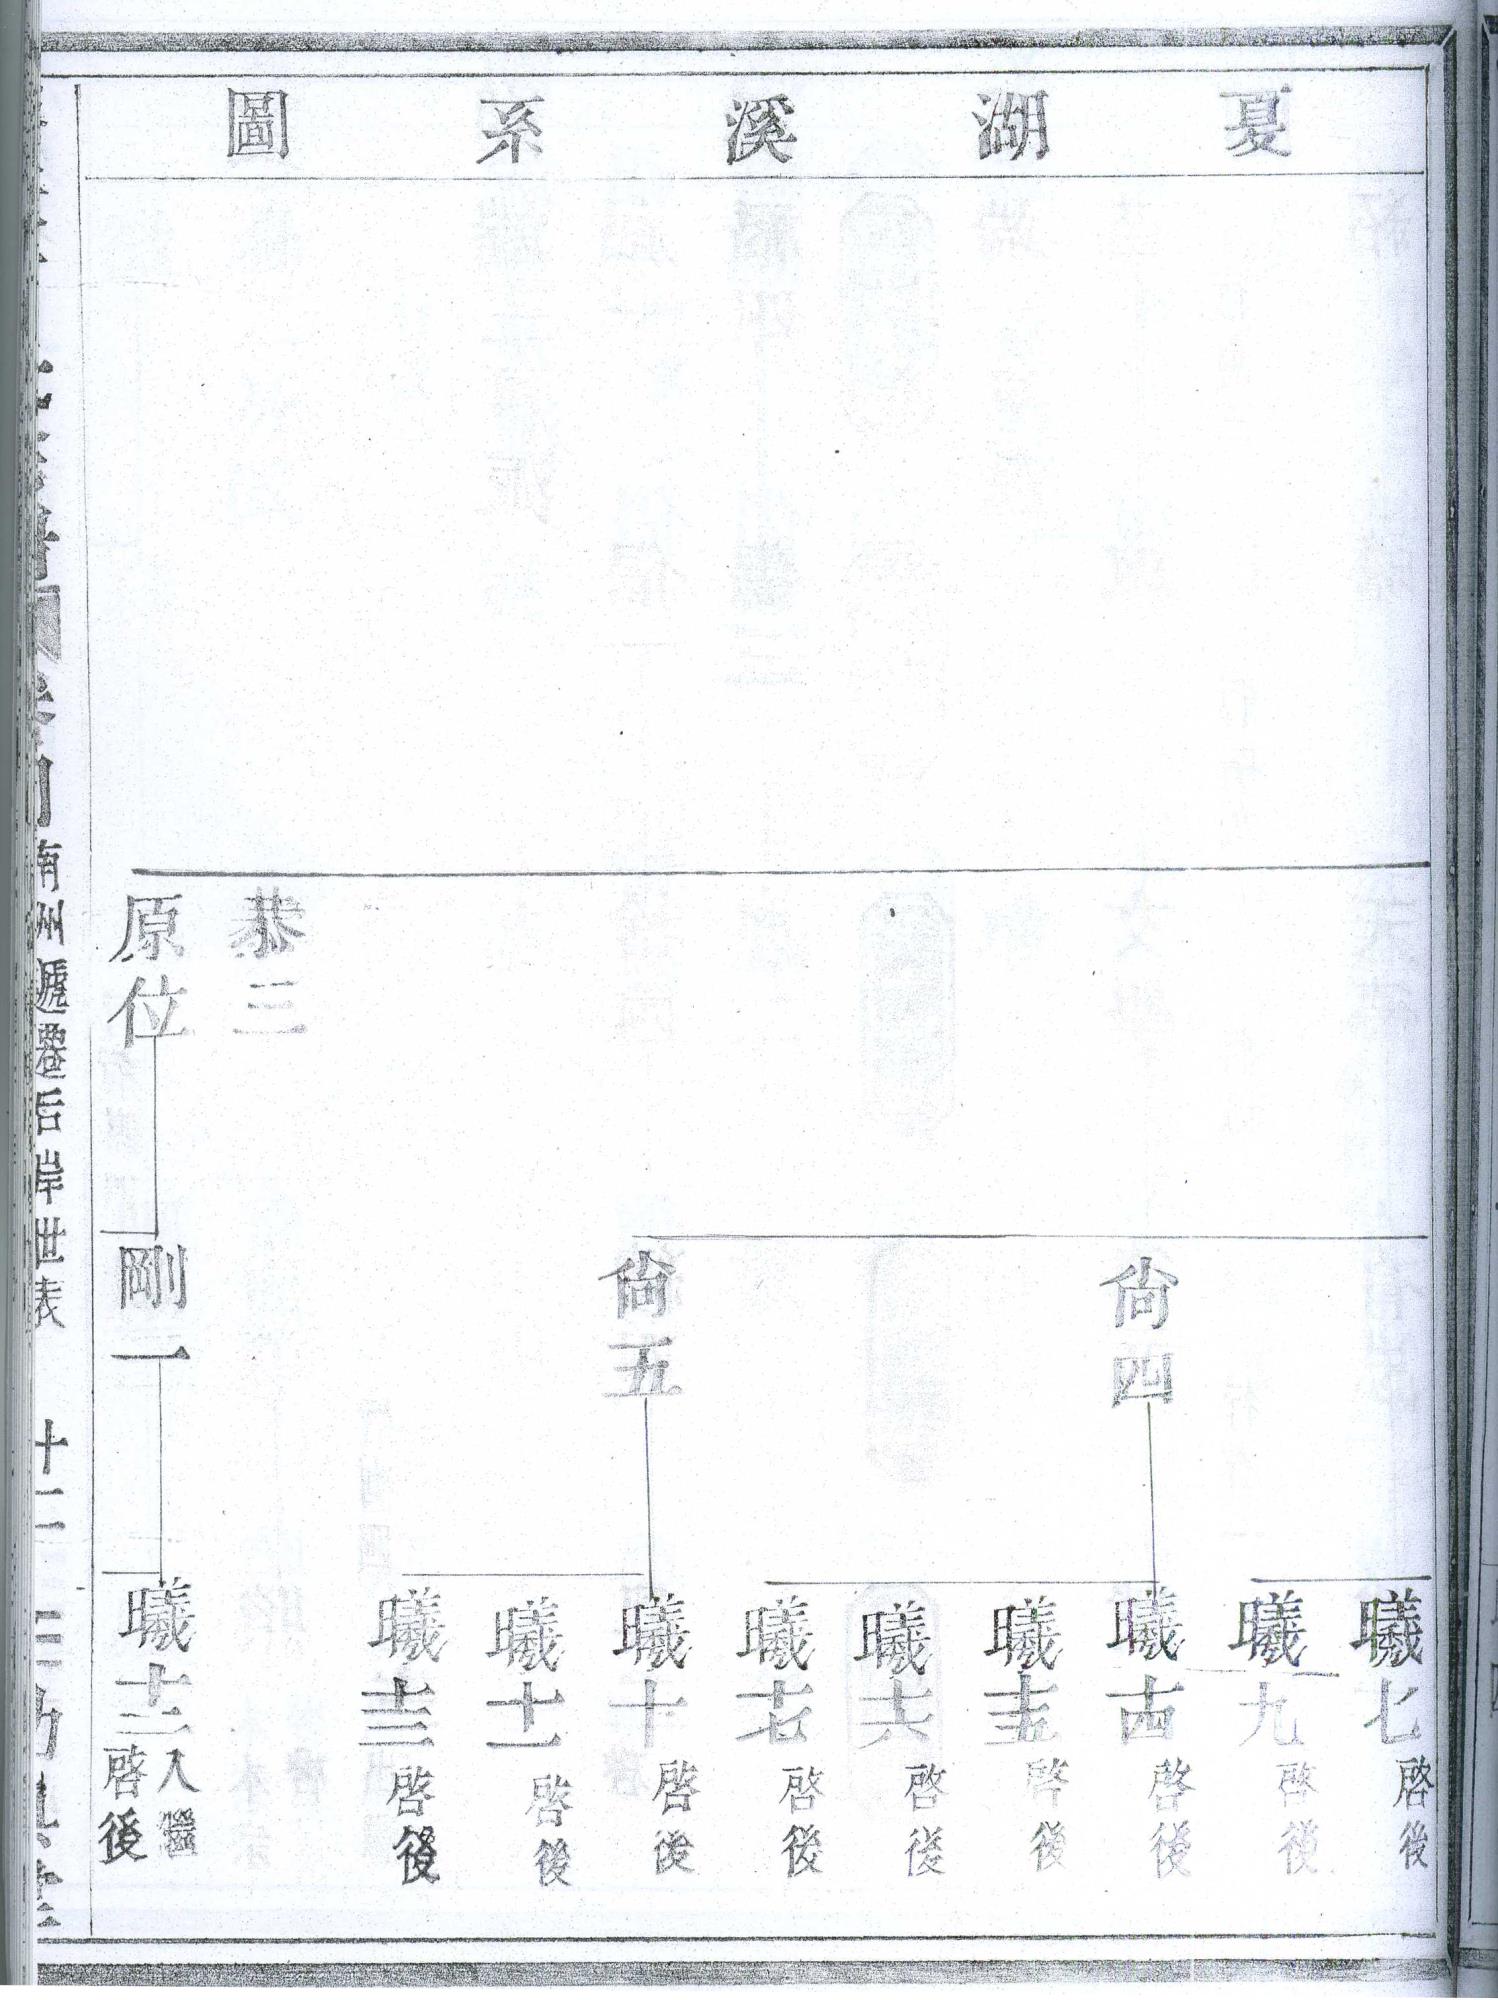 夏湖溪系圖
恭三
原位
尙四
尙五
剛一
曦七 啓後
曦九 啓後
曦十四 啓後
曦十五 啓後
曦十六 啓後
曦十七 啓後
曦十 啓後
曦十一 啓後
曦十三 啓後
曦十二 入繼 啓後
南州遞遷后岸世表 十二